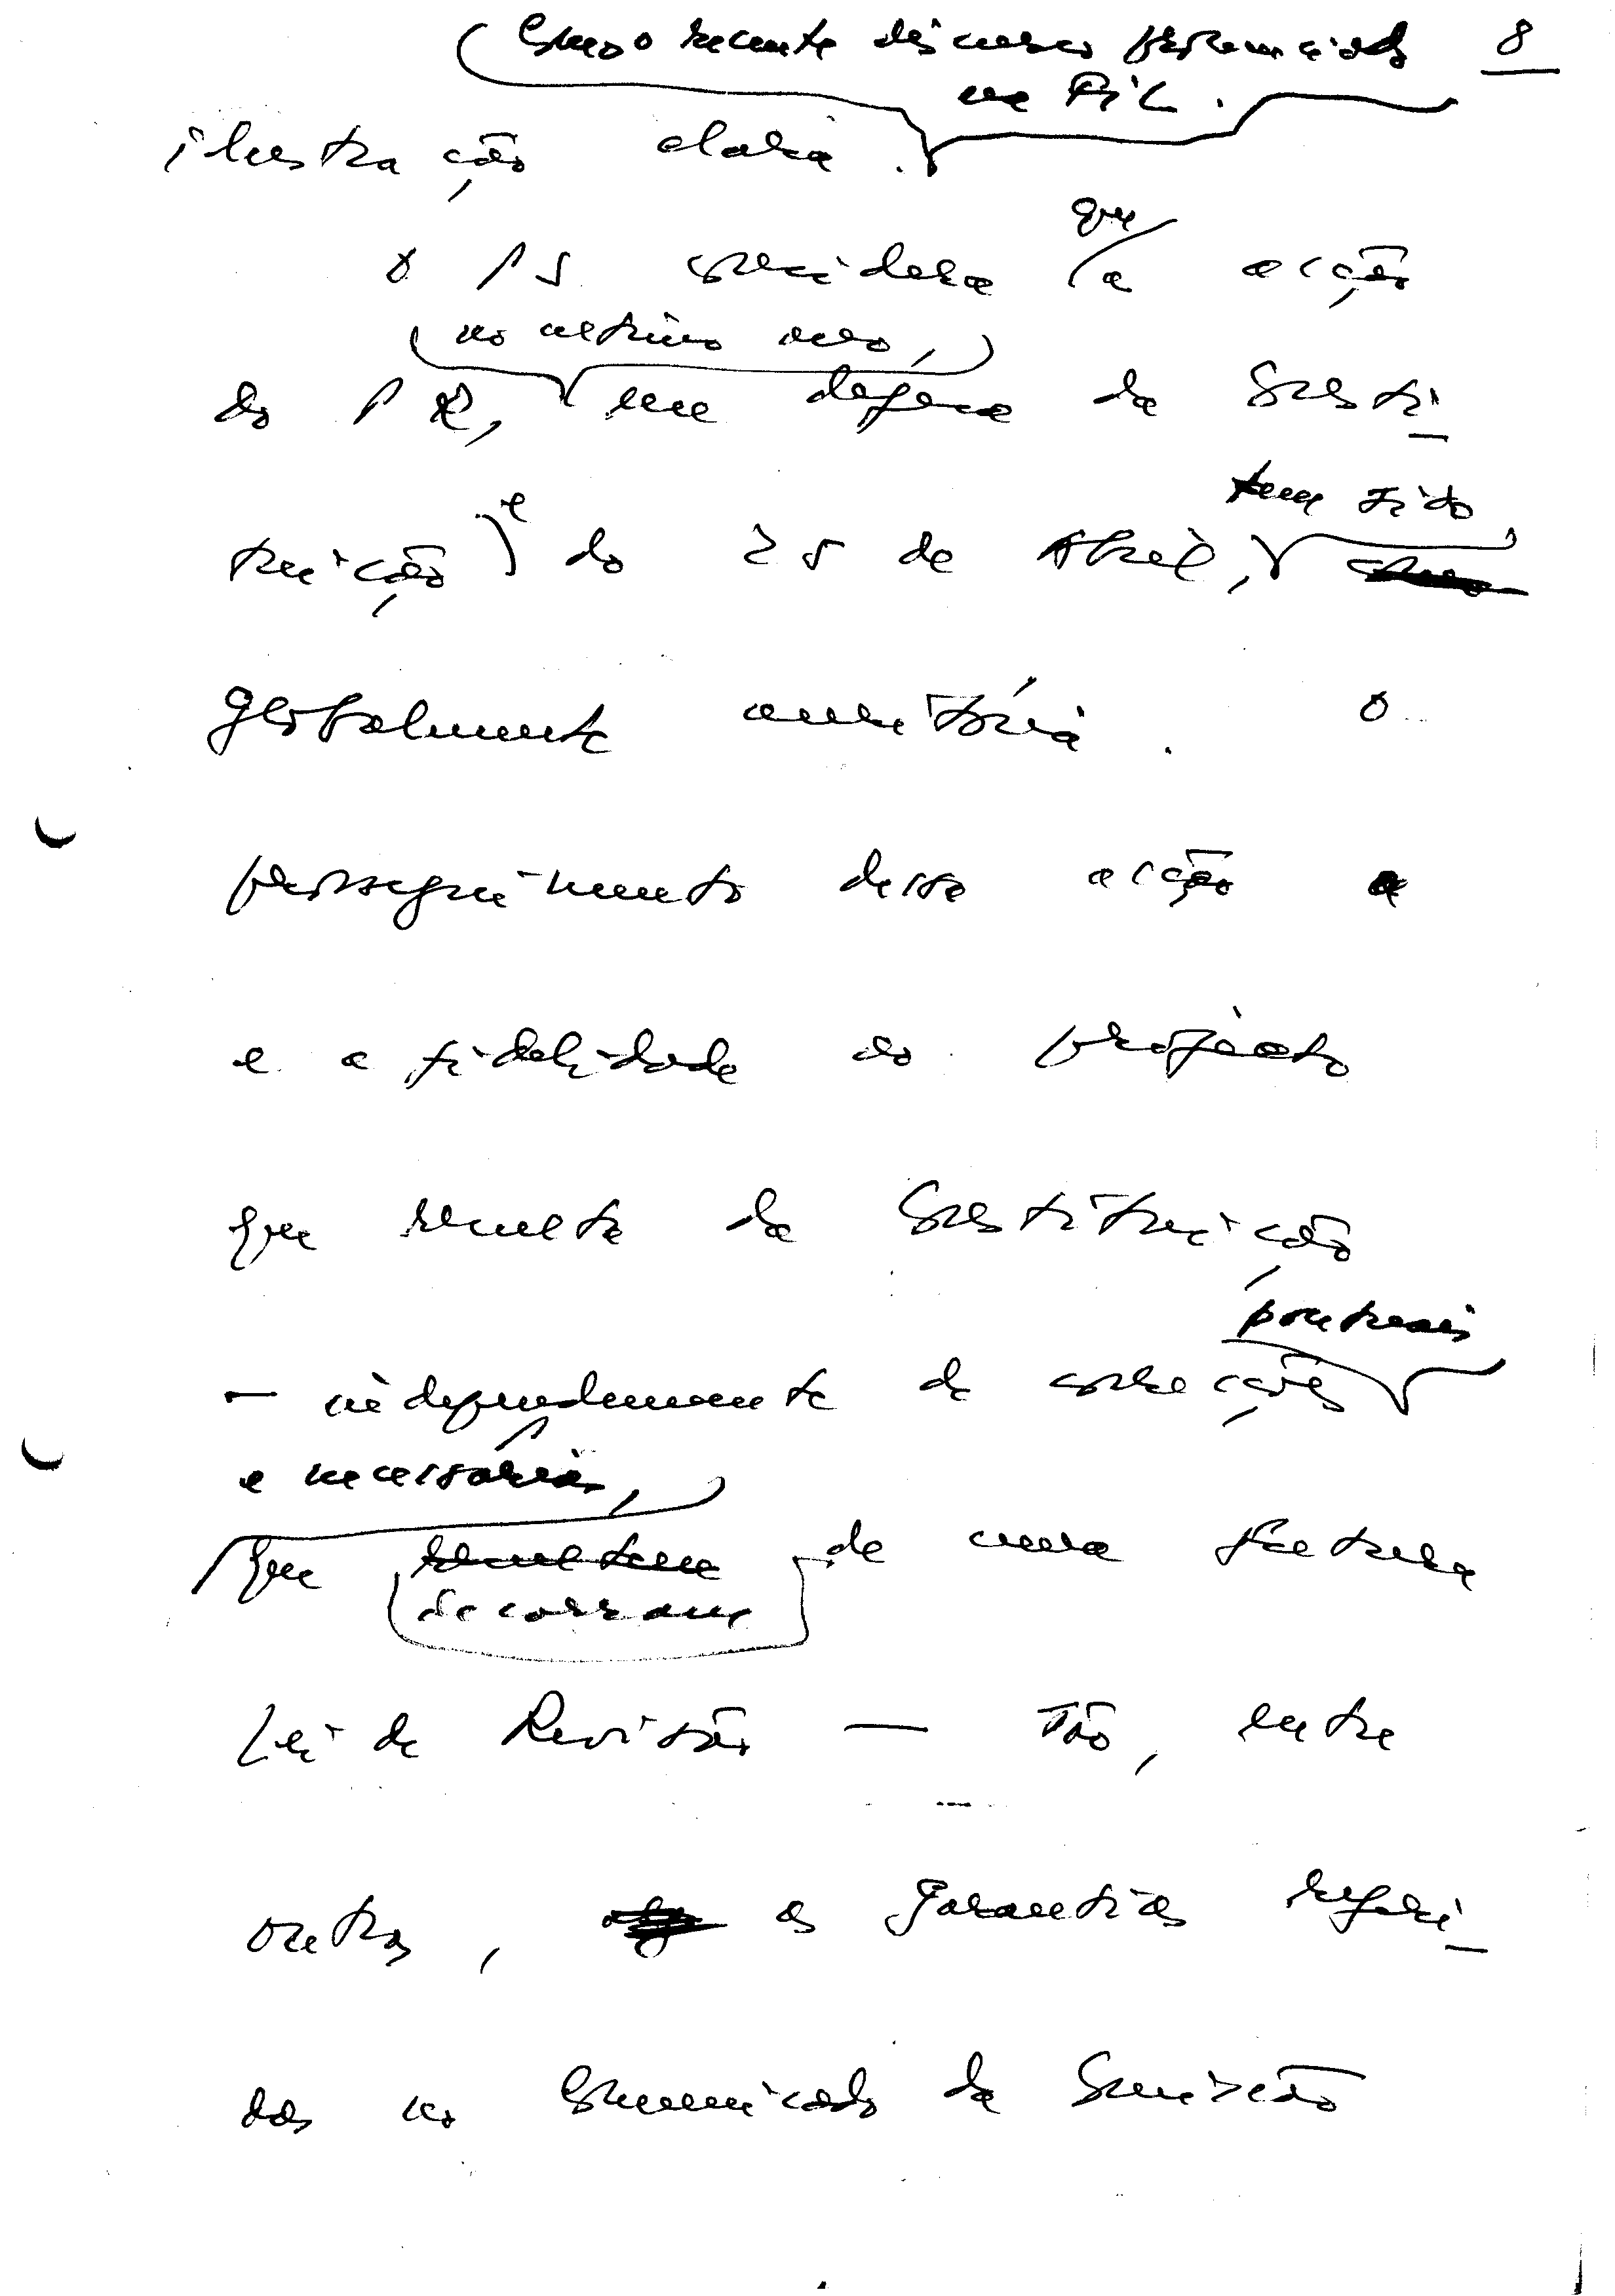 8
como o recente discurso pronunciado
na FIL.
ilustração clara.
que
O PS considera a acção
no último ano,
do PR, em defesa da Consti-
tem sido
tuição e do 25 de Abril,
globalmente meritória. O
prosseguimento dessa acção
e a fidelidade ao projecto
que resulta da Constituição
pontuais
— independentemente de correcções
e necessárias,
que resultem de uma futura
decorram
Lei de Revisão — são, entre
outras, as garantias referi-
das no Comunicado da Comissão